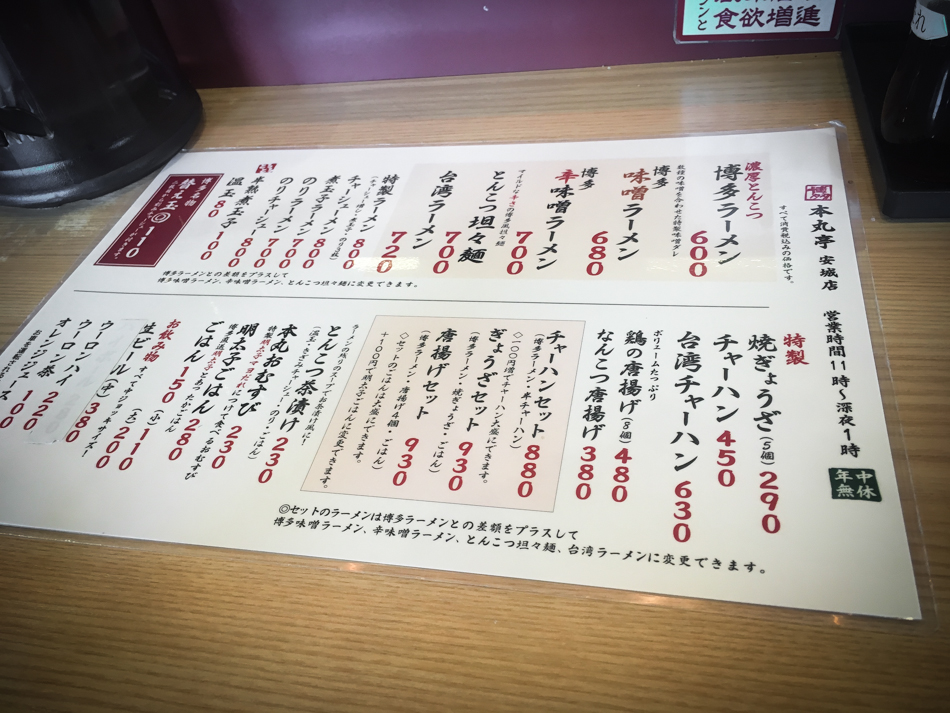 食欲増進
本丸亭 安城店
営業時間11時〜深夜1時
年中無休
すべて消費税込みの価格です。
濃厚とんこつ
博多ラーメン 600
数種の味噌を合わせた特製味噌ダレ
博多味噌ラーメン 680
博多辛味噌ラーメン 700
とんこつ坦々麺
台湾ラーメン 700
特製ラーメン 720
チャーシューメン 800
煮玉子ラーメン 700
のりラーメン 700
のりチャーシュー 800
半熟煮玉子 100
温玉 80
博多名物
替え玉◎110
博多ラーメンとの差額をプラスして
博多味噌ラーメン、辛味噌ラーメン、とんこつ坦々麺に変更できます。
特製
焼ぎょうざ(5個) 290
チャーハン 450
台湾チャーハン 630
ボリュームたっぷり
鶏の唐揚げ(8個) 480
なんこつ唐揚げ 380
チャーハンセット 880
(博多ラーメン・半チャーハン)
◇一〇〇円増でチャーハン大盛にできます。
ぎょうざセット 930
(博多ラーメン・焼ぎょうざ・ごはん)
唐揚げセット 930
(博多ラーメン・唐揚げ4個・ごはん)
◇セットのごはんは大盛にできます。
+100円で明太子ごはんに変更できます。
ラーメンの残りのスープでお茶漬け風に!
とんこつ茶漬け 230
本丸おむすび 230
明太子ごはん 280
お飲み物
生ビール(中) 380
ウーロンハイ
ウーロン茶
オレンジジュース 100
◎セットのラーメンは博多ラーメンとの差額をプラスして
博多味噌ラーメン、辛味噌ラーメン、とんこつ坦々麺、台湾ラーメンに変更できます。